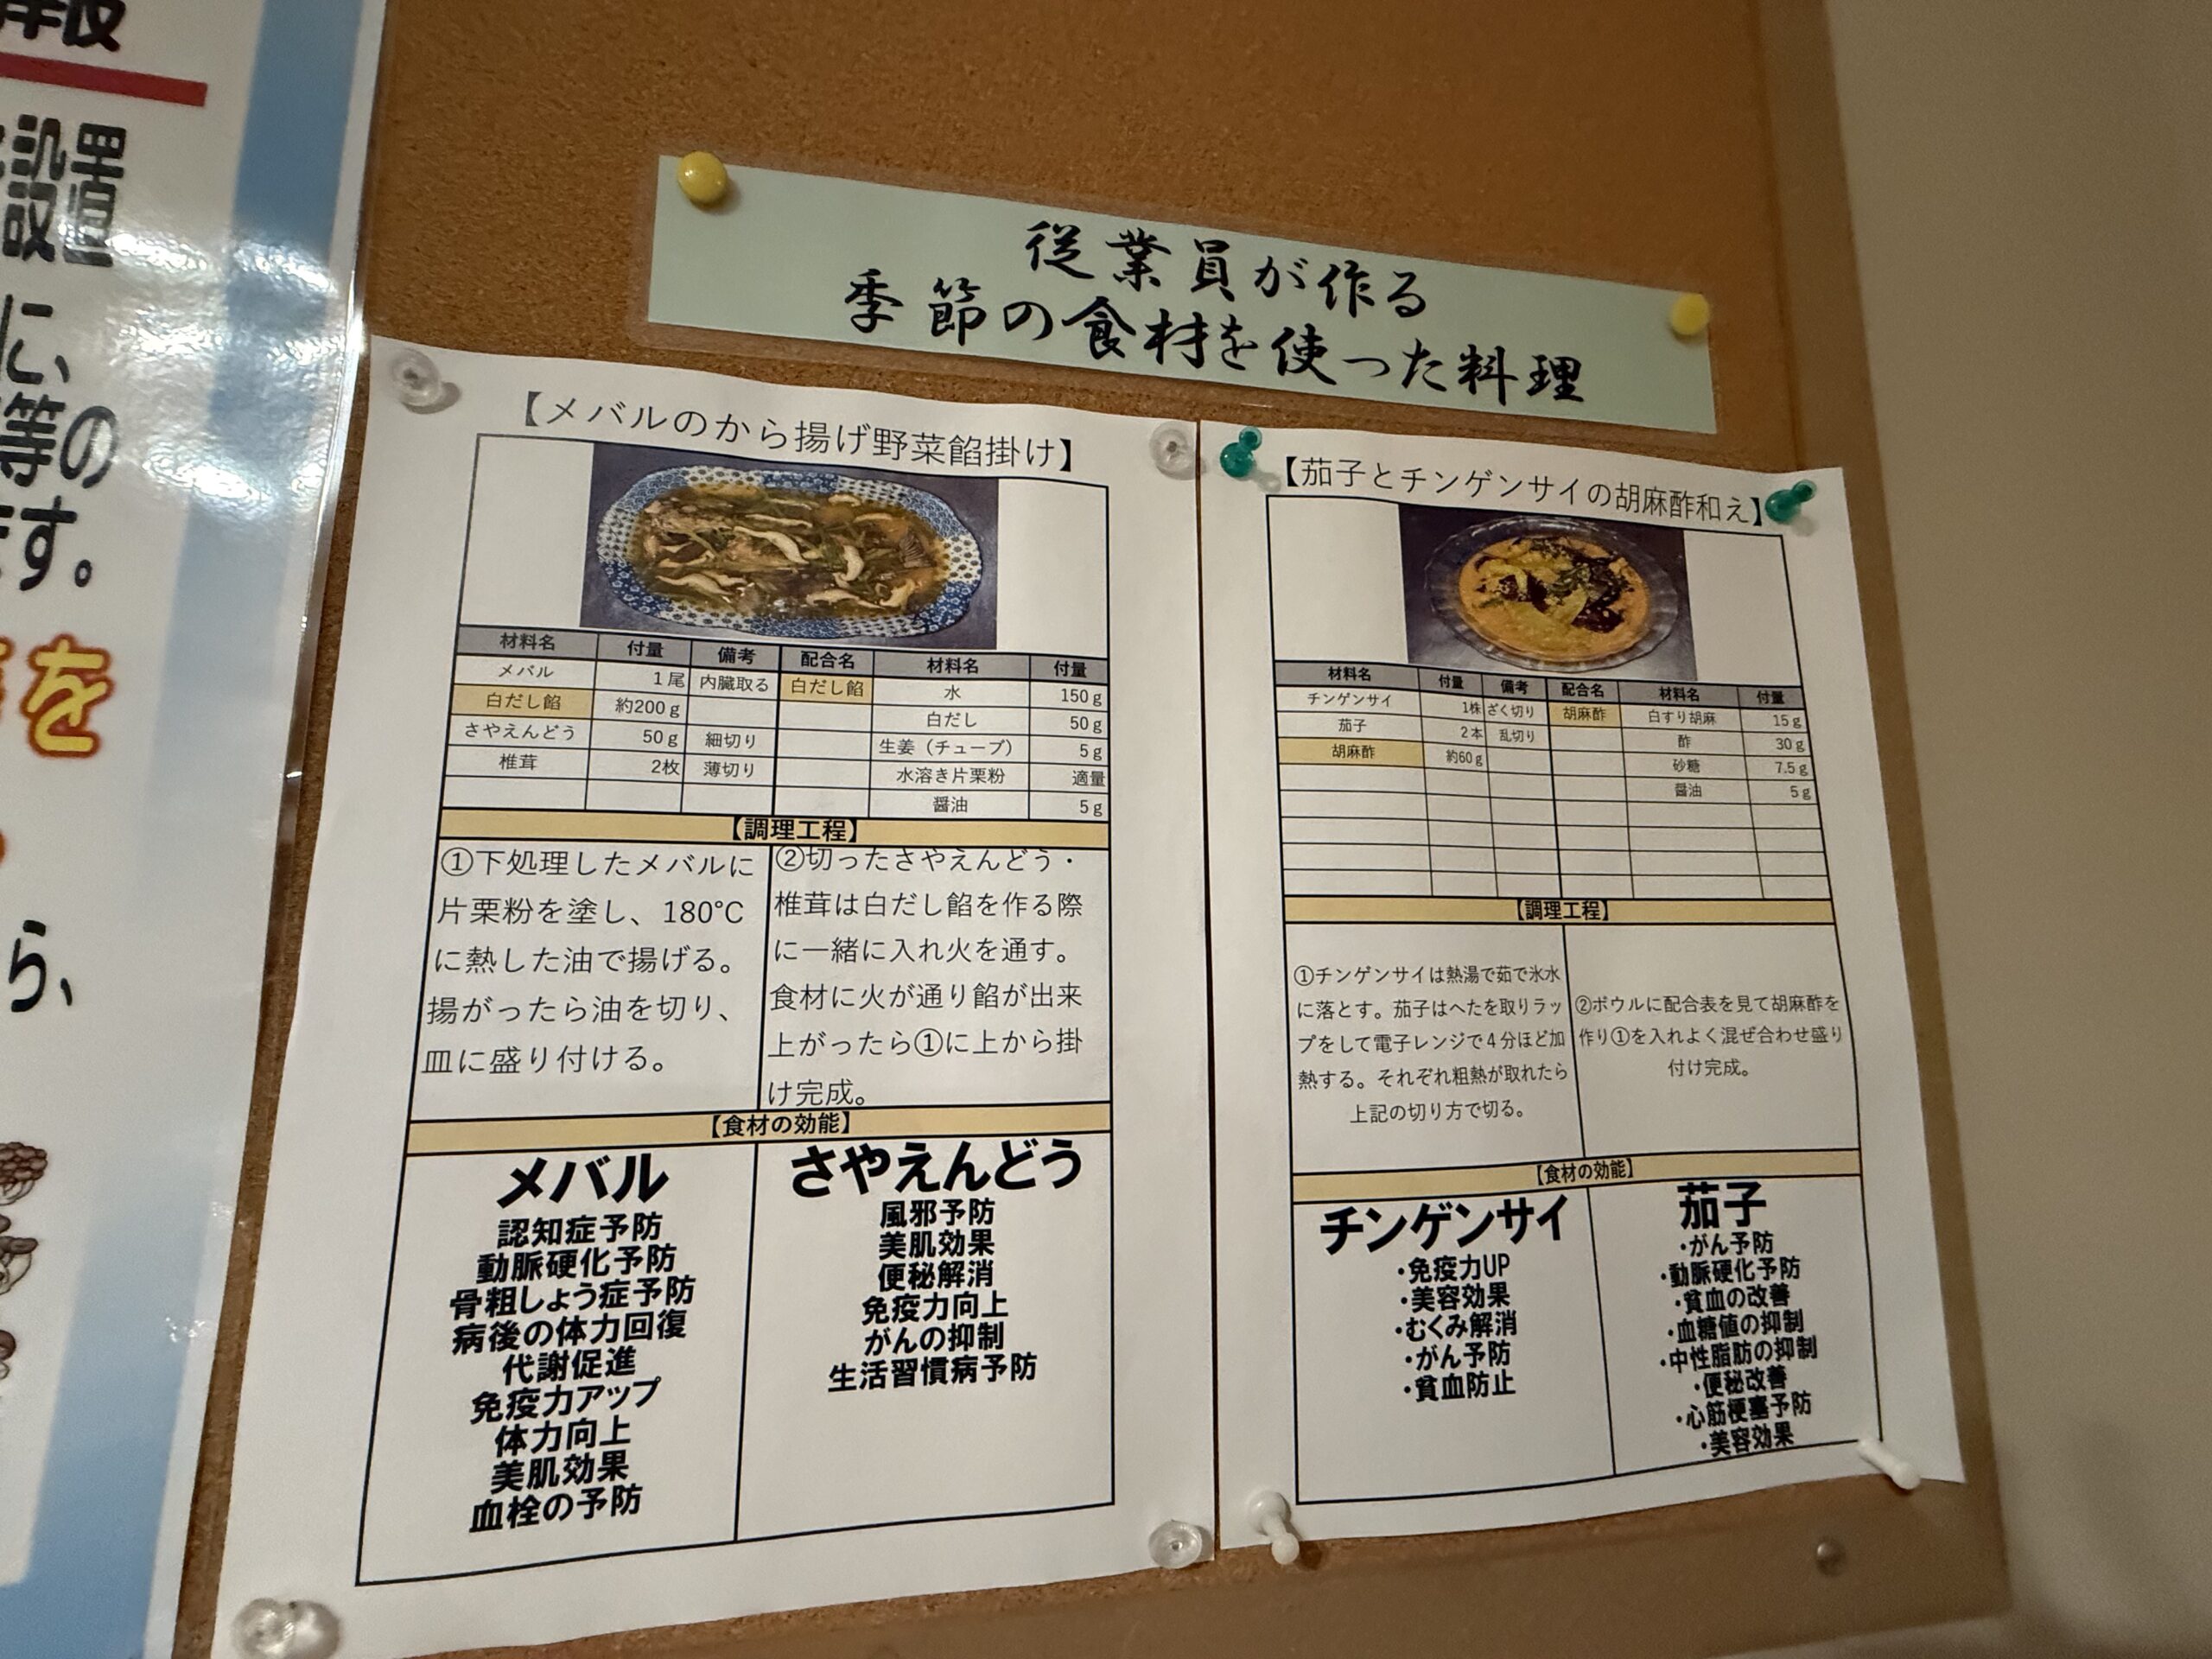 設置
に、
等の
ます。
を
ら、
従業員が作る
季節の食材を使った料理
【メバルのから揚げ野菜餡掛け】
材料名 付量 備考 配合名 材料名 付量
メバル 1尾 内臓取る 白だし餡 水 150g
白だし餡 約200g 白だし 50g
さやえんどう 50g 細切り 生姜（チューブ） 5g
椎茸 2枚 薄切り 水溶き片栗粉 適量
醤油 5g
【調理工程】
①下処理したメバルに
片栗粉を塗し、180℃
に熱した油で揚げる。
揚がったら油を切り、
皿に盛り付ける。
②切ったさやえんどう・
椎茸は白だし餡を作る際
に一緒に入れ火を通す。
食材に火が通り餡が出来
上がったら①に上から掛
け完成。
【食材の効能】
メバル
認知症予防
動脈硬化予防
骨粗しょう症予防
病後の体力回復
代謝促進
免疫力アップ
体力向上
美肌効果
血栓の予防
さやえんどう
風邪予防
美肌効果
便秘解消
免疫力向上
がんの抑制
生活習慣病予防
【茄子とチンゲンサイの胡麻酢和え】
材料名 付量 備考 配合名 材料名 付量
チンゲンサイ 1株 ざく切り 胡麻酢 白すり胡麻 15g
茄子 2本 乱切り 酢 30g
胡麻酢 約60g 砂糖 7.5g
醤油 5g
【調理工程】
①チンゲンサイは熱湯で茹で氷水
に落とす。茄子はへたを取りラッ
プをして電子レンジで4分ほど加
熱する。それぞれ粗熱が取れたら
上記の切り方で切る。
②ボウルに配合表を見て胡麻酢を
作り①を入れよく混ぜ合わせ盛り
付け完成。
【食材の効能】
チンゲンサイ
・免疫力UP
・美容効果
・むくみ解消
・がん予防
・貧血防止
茄子
・がん予防
・動脈硬化予防
・貧血の改善
・血糖値の抑制
・中性脂肪の抑制
・便秘改善
・心筋梗塞予防
・美容効果